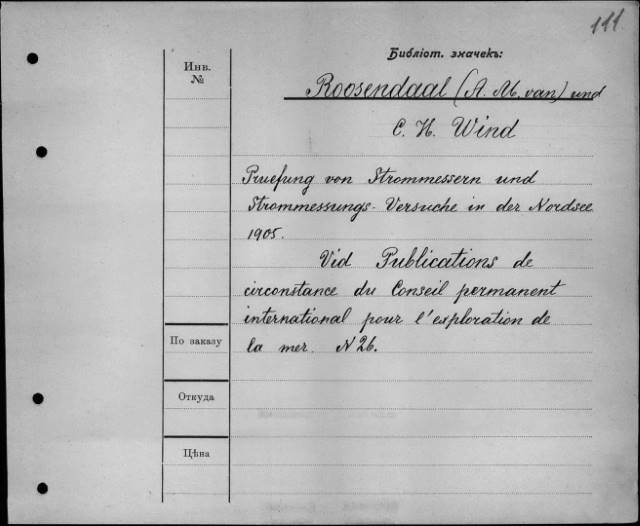 111.
Библіот. значекъ:
Инв.
№
Roosendaal (A. M. van) und
C. H. Wind
Pruefung von Strommessern und
Strommessungs-Versuche in der Nordsee
1905.
Vid Publications de
circonstance du Conseil permanent
international pour l'exploration de
la mer. N 26.
По заказу
Откуда
Цѣна